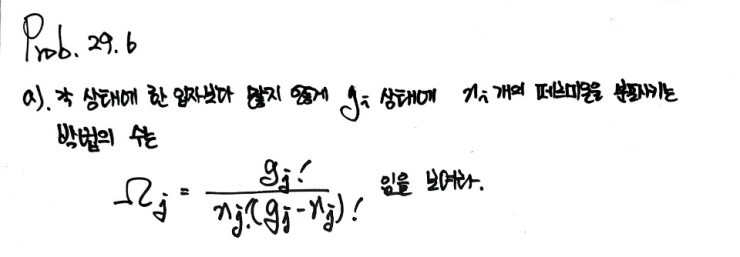 Prob. 29.6
a). 각 상태에 한 입자보다 많지 않게 g_i 상태에 n_i 개의 페르미온을 분포시키는
방법의 수는
Ω_j = g_j! / n_j!(g_j - n_j)! 임을 보여라.